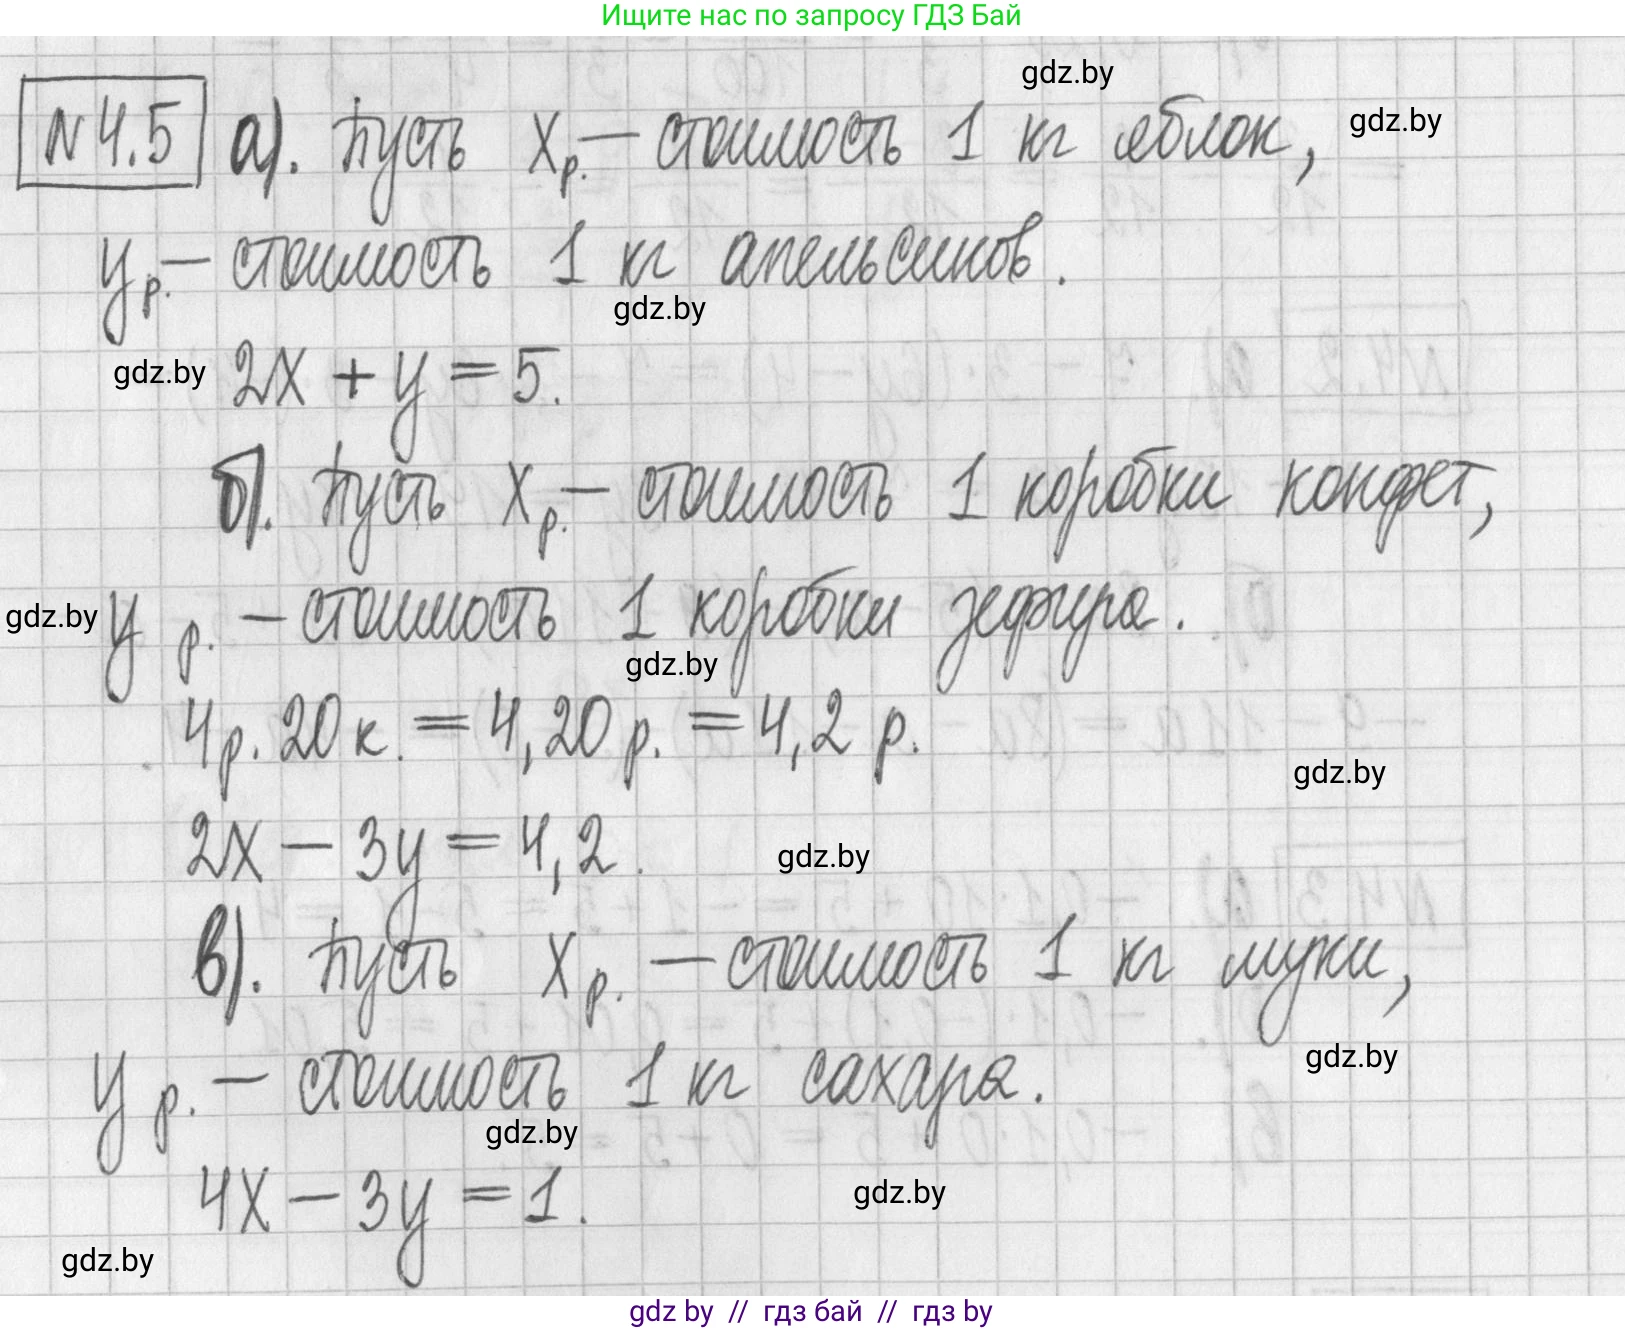 Ищите нас по запросу ГДЗ Бай
gdz.by
N 4.5 а). Пусть x р. – стоимость 1 кг яблок, gdz.by
y р. – стоимость 1 кг апельсинов.
gdz.by
gdz.by 2x + y = 5.
б). Пусть x р. – стоимость 1 коробки конфет,
gdz.by y р. – стоимость 1 коробки зефира.
gdz.by
4 р. 20 к. = 4,20 р. = 4,2 р.
gdz.by
2x – 3y = 4,2. gdz.by
в). Пусть x р. – стоимость 1 кг муки,
gdz.by
y р. – стоимость 1 кг сахара.
gdz.by
4x – 3y = 1. gdz.by
gdz.by
gdz by // гдз бай // гдз by